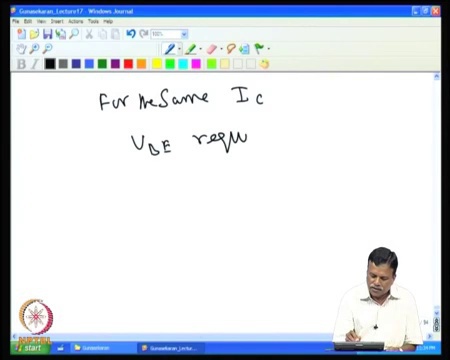 Gunasekaran_Lecture17 - Windows Journal
File Edit View Insert Actions Tools Help
100%
B I
For the Same Ic
VBE requ
NPTEL
start
Gunasekaran
Gunasekaran_Lectur...